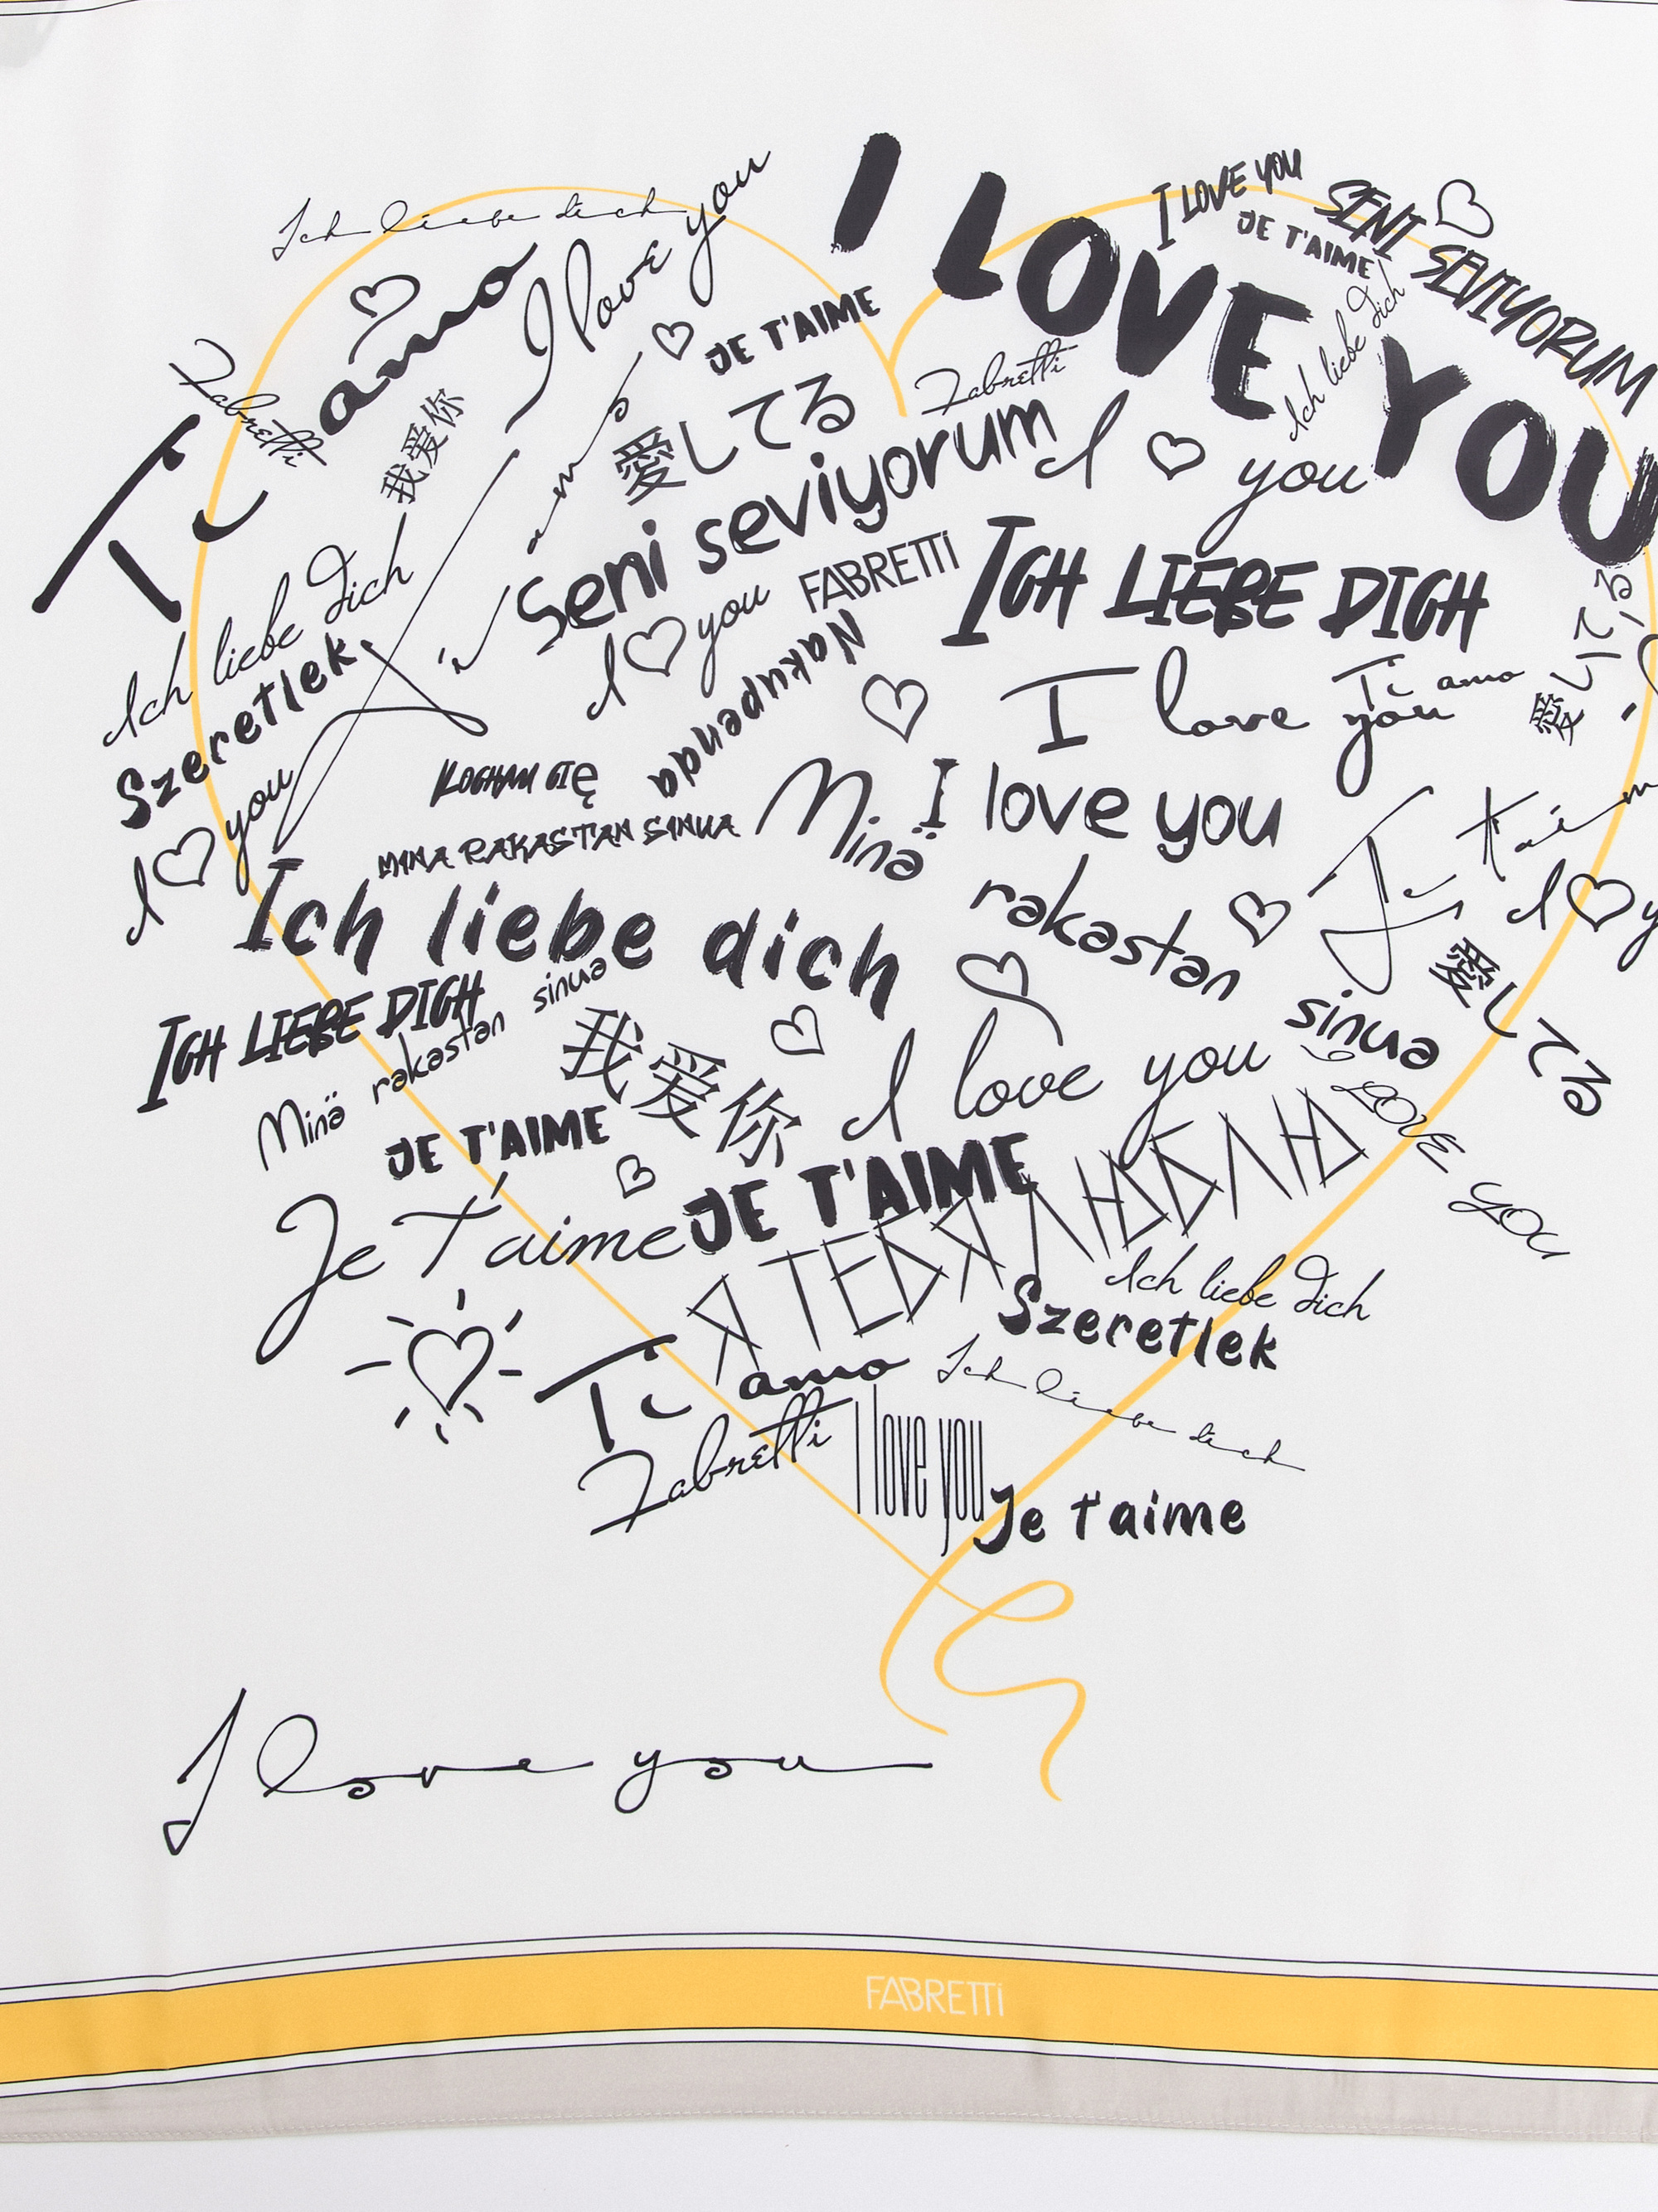 I LOVE YOU
I LOVE YOU
SENI SEVIYORUM
JE T'AIME
Ich liebe dich
Ich liebe dich
I love you
Ti amo
JE T'AIME
Fabretti
Fabretti
我爱你
Ti amo
愛してる
Seni seviyorum
I you
FABRETTI
ICH LIEBE DICH
Ich liebe dich
Szeretlek
I you
I you
Nakupenda
I love you
Ti amo
愛してる
KOCHAM CIĘ
MINA RAKASTAN SINUA
I love you
Minä rakastan sinua
Ich liebe dich
I y
愛してる
ICH LIEBE DICH
Minä rakastan sinua
我爱你
I love you
I LOVE YOU
JE T'AIME
Je t'aime
JE T'AIME
Я ТЕБЯ ЛЮБЛЮ
Ich liebe dich
Szeretlek
Ti amo
Ich liebe dich
Fabretti
I love you
Je t'aime
I love you
FABRETTI